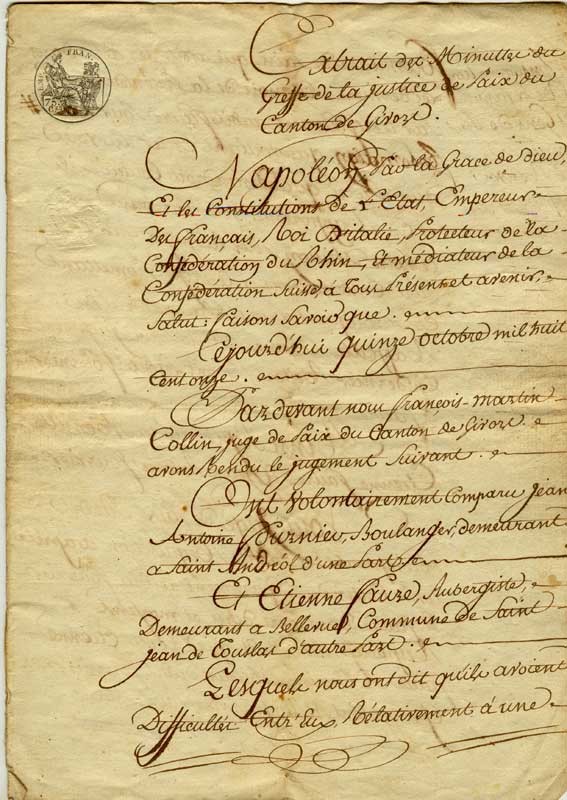 Extrait des Minuttes du
Greffe de la justice de Paix du
Canton de Givors.
Napoléon, Par la Grace de dieu,
Et les Constitutions de L'Etat, Empereur
Des français, Roi D'italie, Protecteur de la
Confédération du Rhin, Et médiateur de la
Confédération Suisse, à tous Présent et avenir,
Salut: faisons Savoir que.
Cejourd'hui quinze octobre mil huit
Cent onze.
Pardevant nous françois-martin
Collin, juge de Paix du Canton de Givors
avons Rendu le jugement Suivant.
Ont Volontairement Comparu jean
Antoine fournier, Boulanger, demeurant
a Saint Andréol d'une Part
Et Etienne fauze, Aubergiste,
Demeurant a Bellevue, Commune de Saint
jean de Touslas d'autre Part.
Lesquels nous ont dit qu'ils avoient
Difficultés Entr'Eux Rélativement à une